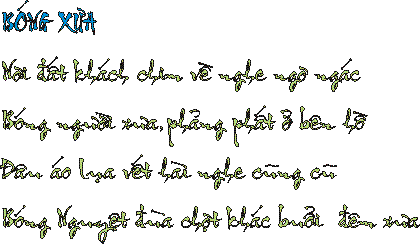 BÓNG XƯA
Nơi đất khách chim về nghe ngơ ngác
Bóng người xưa, phảng phất ở bên hồ
Đau áo lụa vết hài nghe cũng cũ
Bóng Nguyệt đùa chợt khác buổi đêm xưa